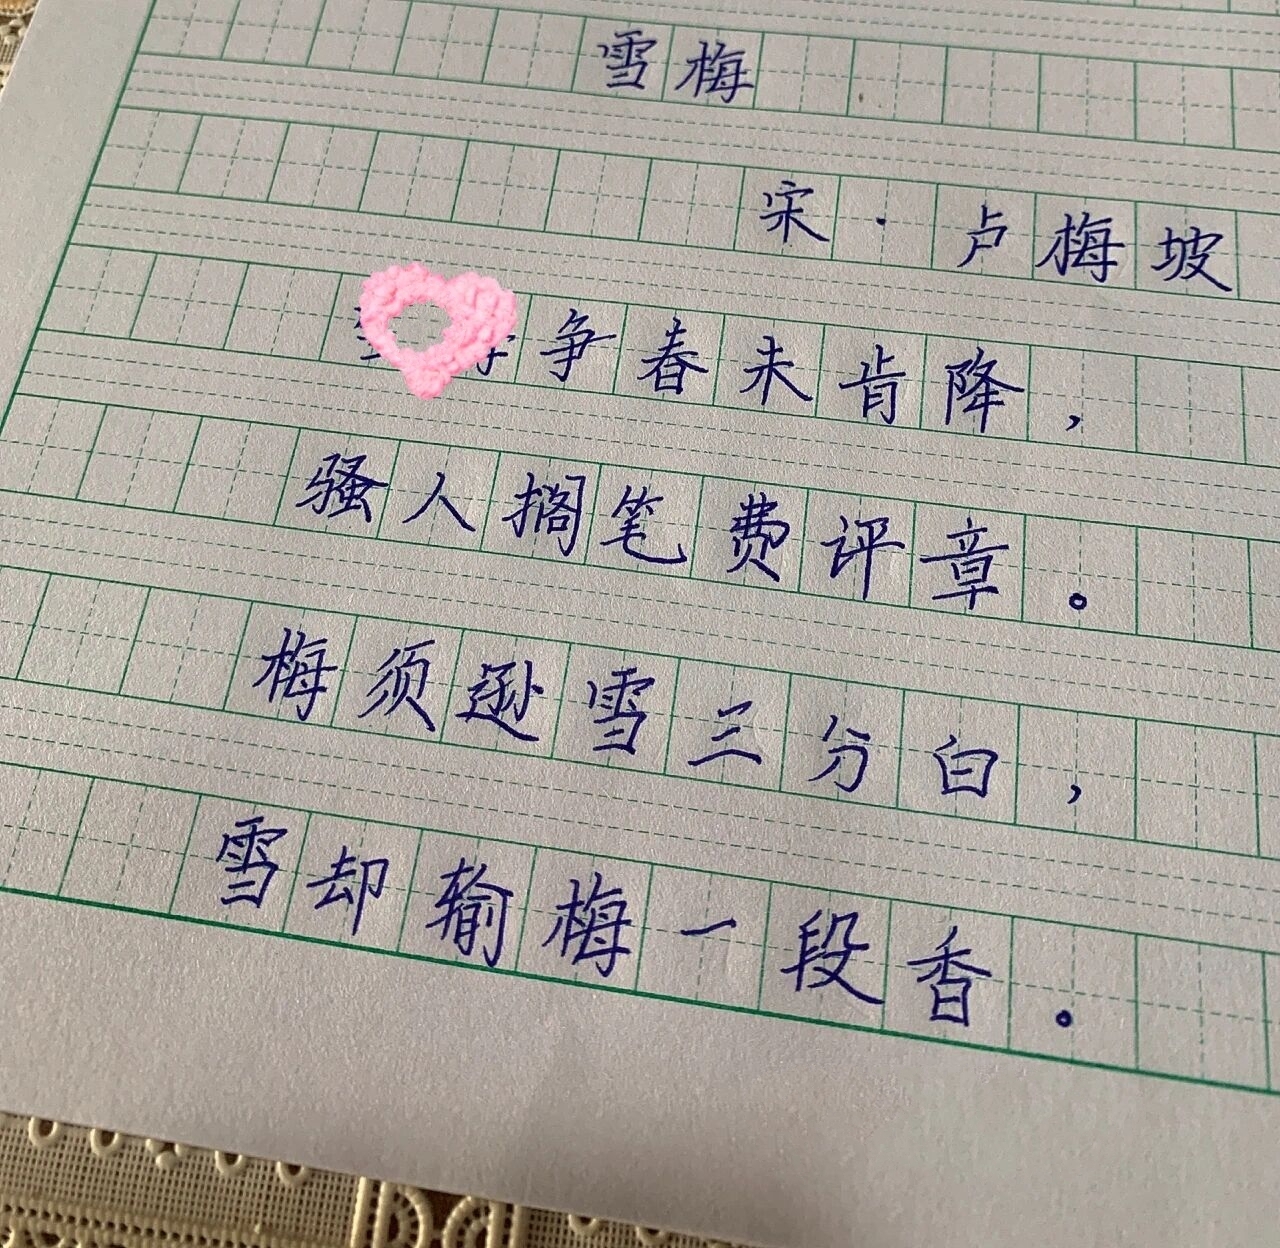 雪梅
宋·卢梅坡
争春未肯降，
骚人搁笔费评章。
梅须逊雪三分白，
雪却输梅一段香。